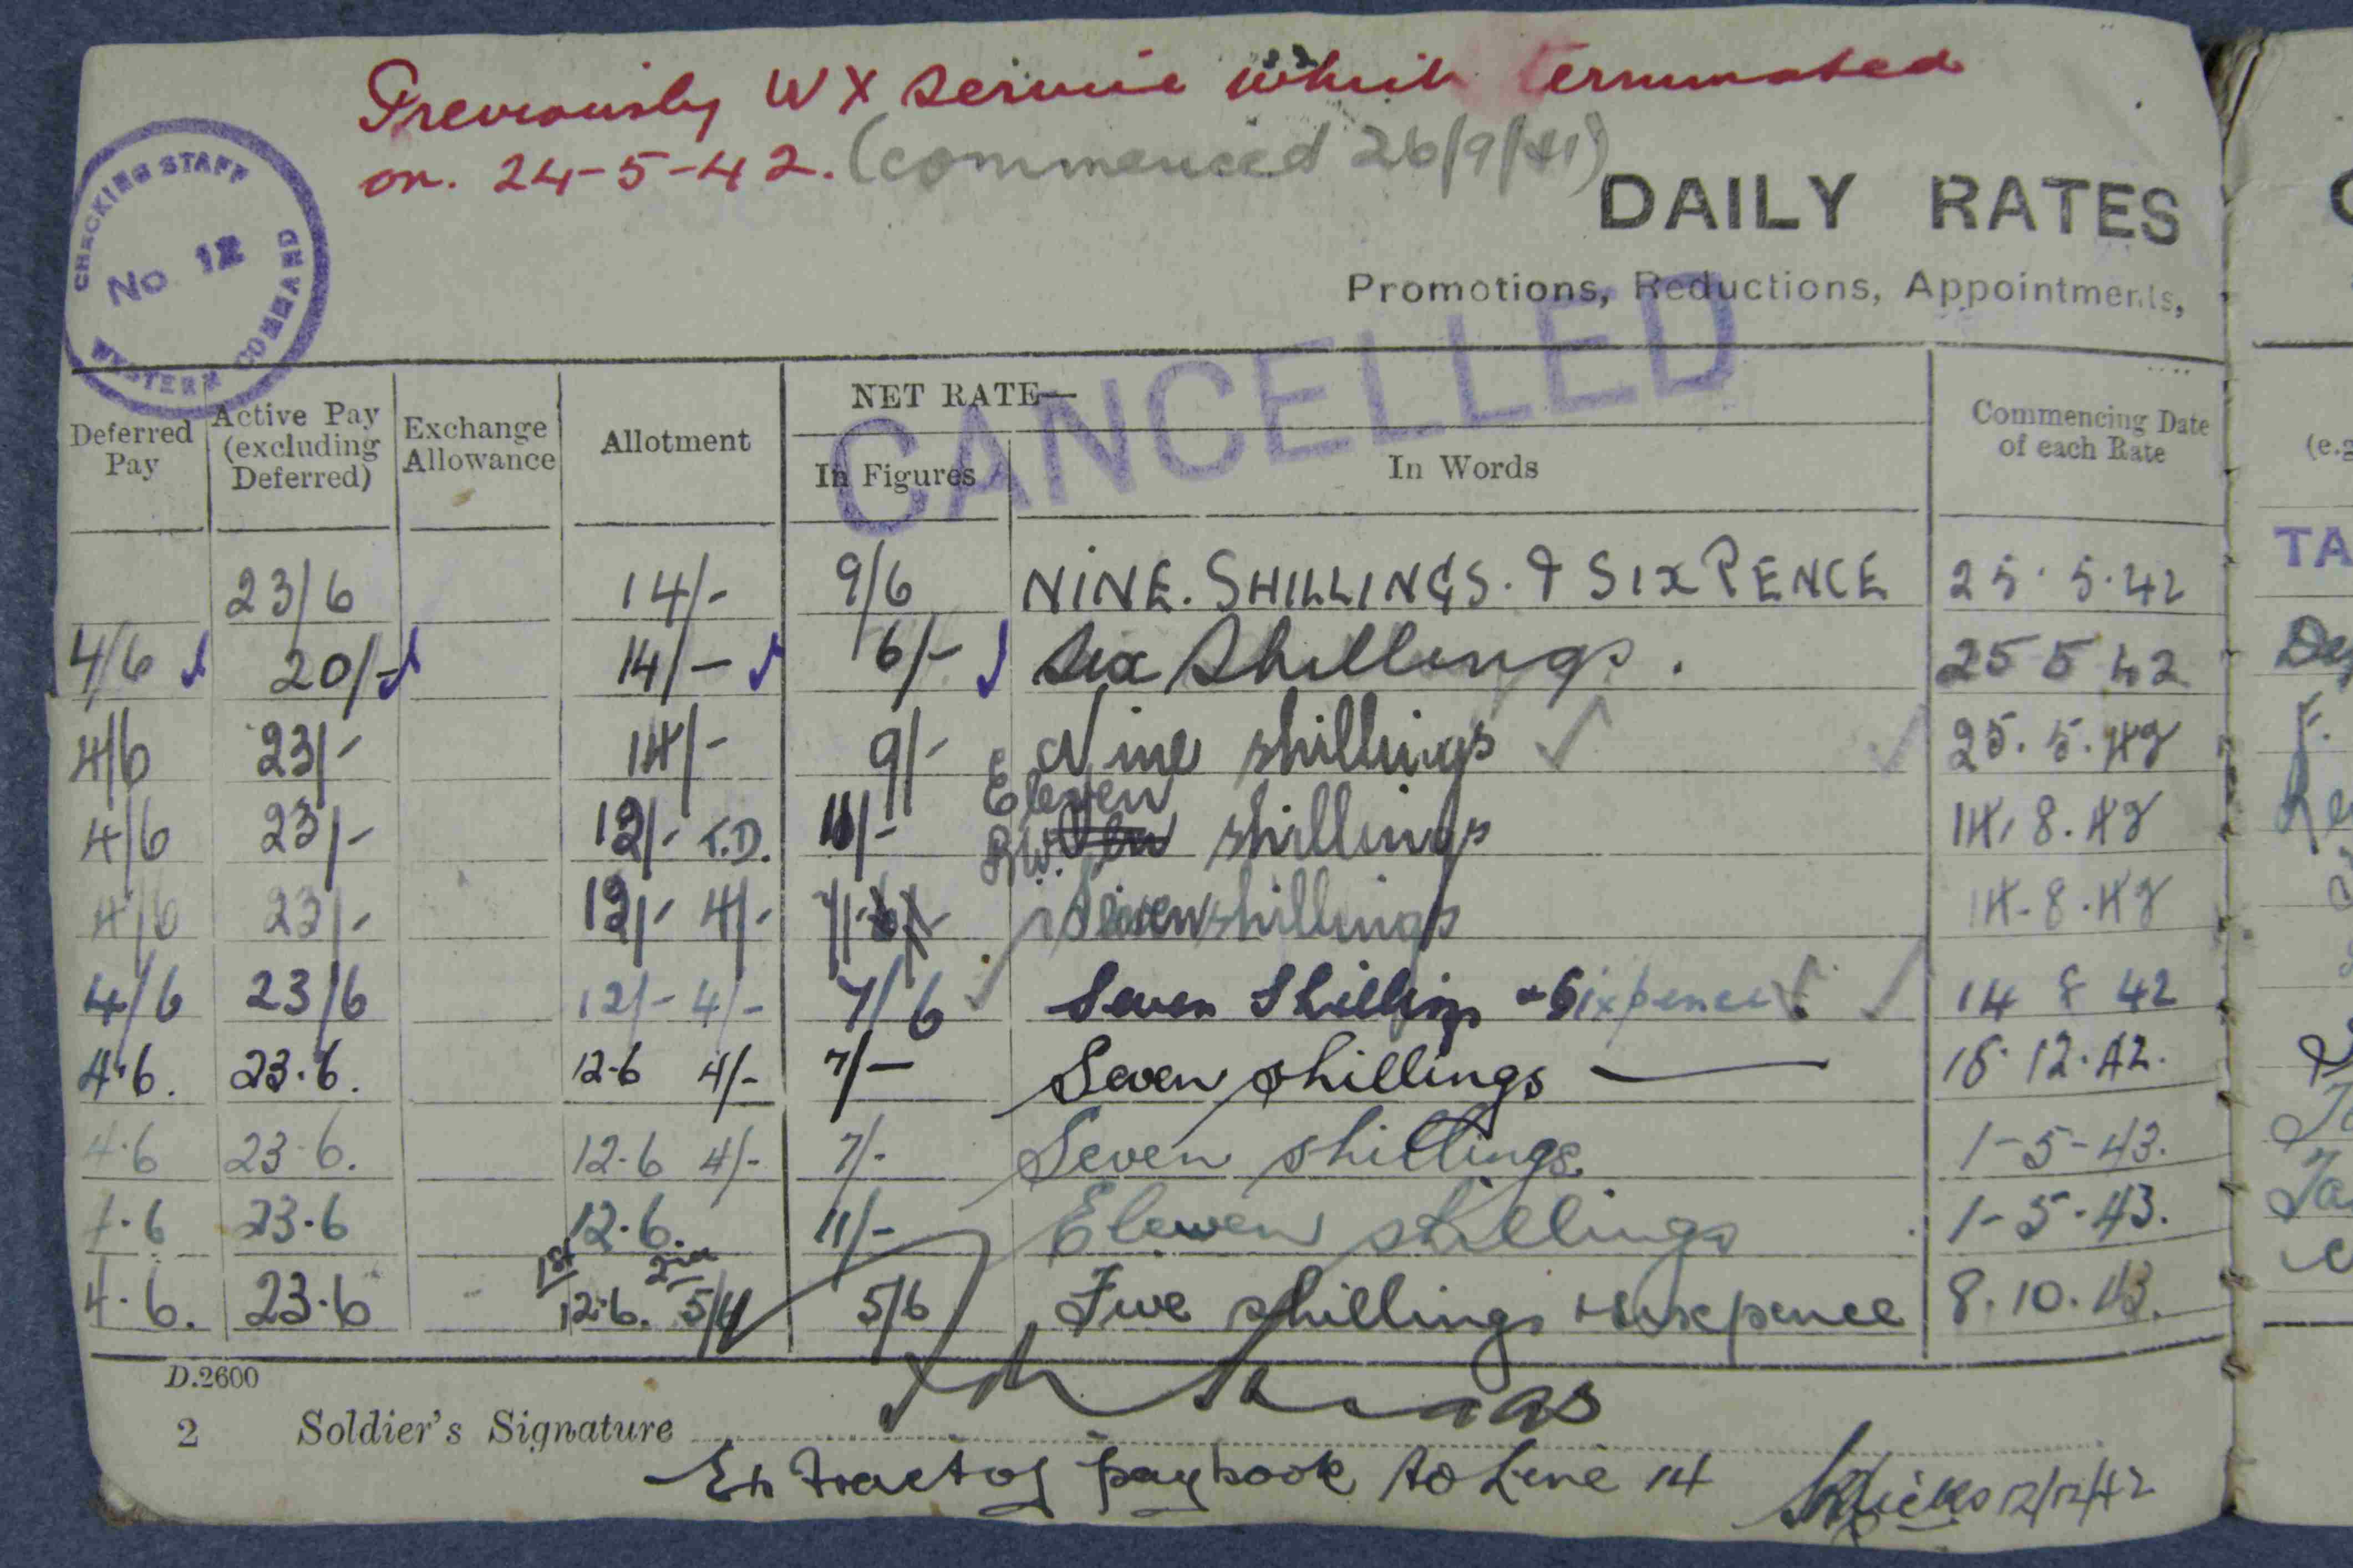 Previously WX service which terminated
on. 24-5-42. (commenced 26/9/41)
CHECKING STAFF
No 12
WESTERN COMMAND
DAILY RATES
Promotions, Reductions, Appointments,
CANCELLED
Deferred Pay Active Pay (excluding Deferred) Exchange Allowance Allotment NET RATE— In Figures In Words Commencing Date of each Rate
(e.g
23/6 14/- 9/6 NINE. SHILLINGS. & SIX PENCE 25. 5.42
TA
4/6 20/- 14/- 6/- Six Shillings. 25 5 42
4/6 23/- 14/- 9/- Nine shillings 25. 5. 42
Eleven
4/6 23/- 12/- T.D. 11/- shillings 14. 8. 42
4/6 23/- 12/- 4/- 7/- Seven shillings 14. 8. 42
4/6 23/6 12/- 4/- 7/6 Seven Shillings & Sixpence. 14 8 42
4.6. 23.6. 12.6 4/- 7/- Seven shillings 16. 12. 42.
4.6 23.6. 12.6 4/- 7/- Seven shillings. 1-5-43.
4.6 23.6 12.6. 11/- Eleven shillings 1-5-43.
1st 2nd
4.6. 23.6 12.6. 5/6 Five shillings & sixpence 8.10.43.
D.2600
2 Soldier's Signature
Extract of paybook to Line 14 12/12/42